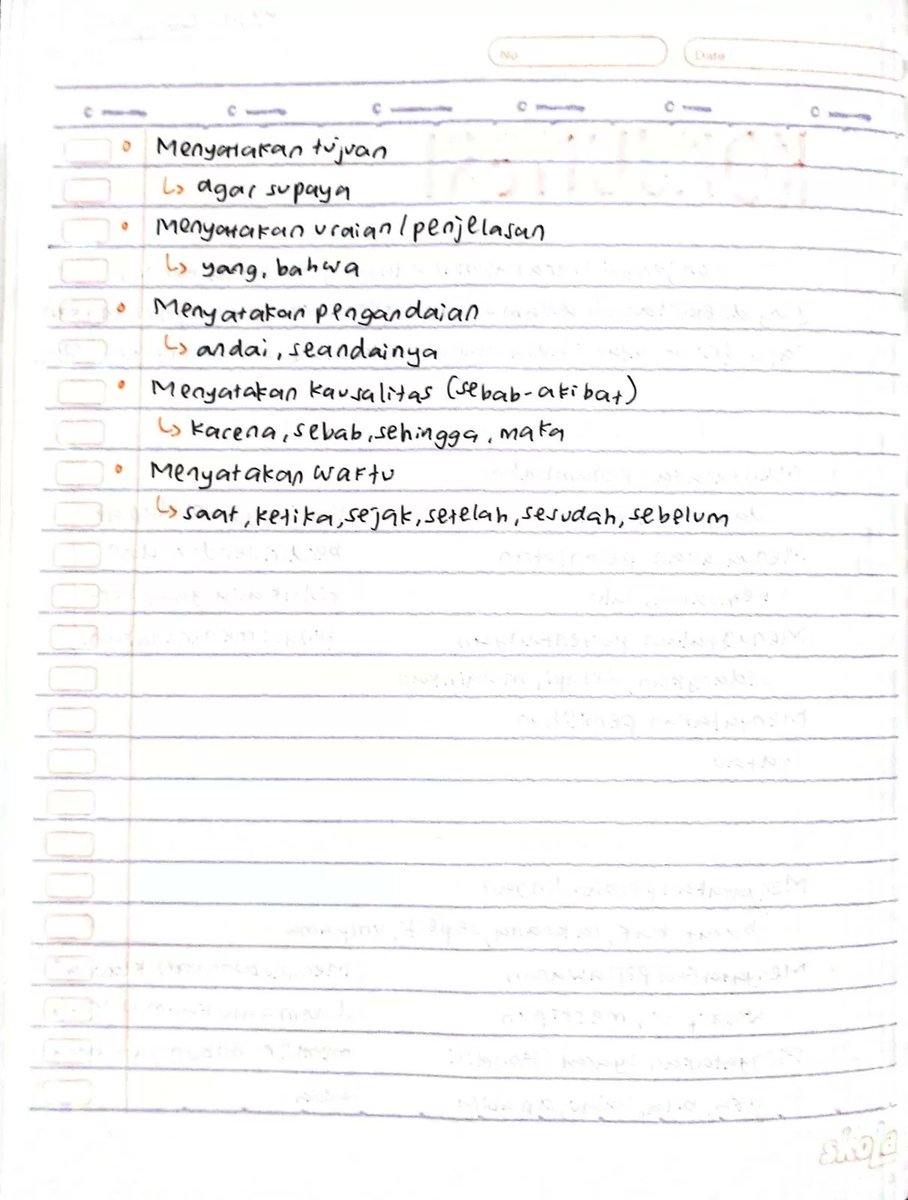 No
Date
• Menyatakan tujuan
↳ agar supaya
• Menyatakan uraian/penjelasan
↳ yang, bahwa
• Menyatakan pengandaian
↳ andai, seandainya
• Menyatakan kausalitas (sebab-akibat)
↳ karena, sebab, sehingga, maka
• Menyatakan waktu
↳ saat, ketika, sejak, setelah, sesudah, sebelum